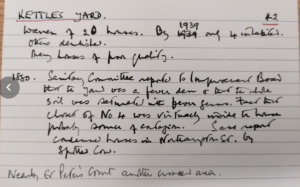 KETTLES YARD. A2
1939
Warren of 20 houses. By 1939 only 4 inhabited.
Many houses of poor quality.
1880. Sanitary Committee reported to Improvement Board
that the yard was a fever den & that the whole
soil was saturated with fever germs. Fact that
closet of No 4 was virtually inside the house
probably source of contagion. Same report
condemned houses in Northampton St. by
Spotted Cow.
Nearby St Peters Court another crowded area.